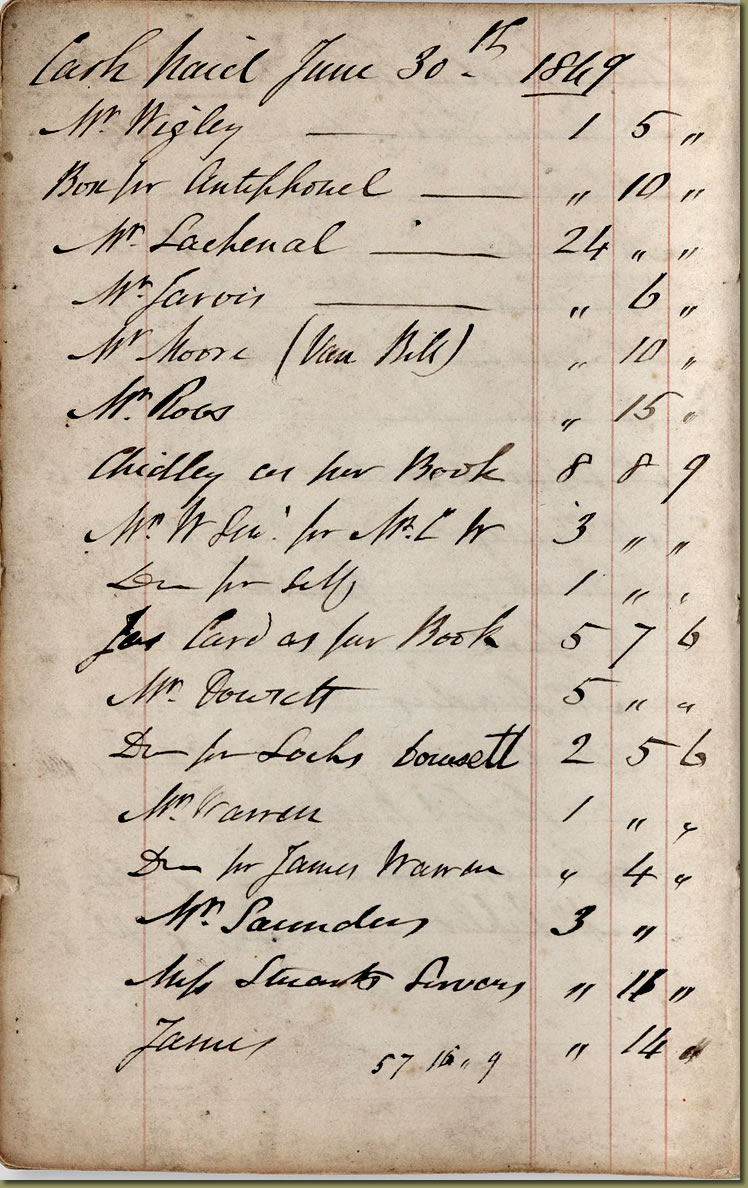 Cash paid June 30th 1849
Mr Wigley — 1 5 "
Box for Antiphonel — " 10 "
Mr Lachenal — 24 " "
Mr Jarvis — " 6 "
Mr Moore (Van Bill) " 10 "
Mr Roos " 15 "
Chidley as per Book 8 8 9
Mr W Senr for Mr C W 3 " "
Do for Self 1 " "
Jas Card as per Book 5 7 6
Mr Dowsett 5 " "
Do for Locks Dowsett 2 5 6
Mr Warren 1 " "
Do for James Warren " 4 "
Mr Saunders 3 "
Miss Stuarts " 11 "
James 57 " 9 " 14 "